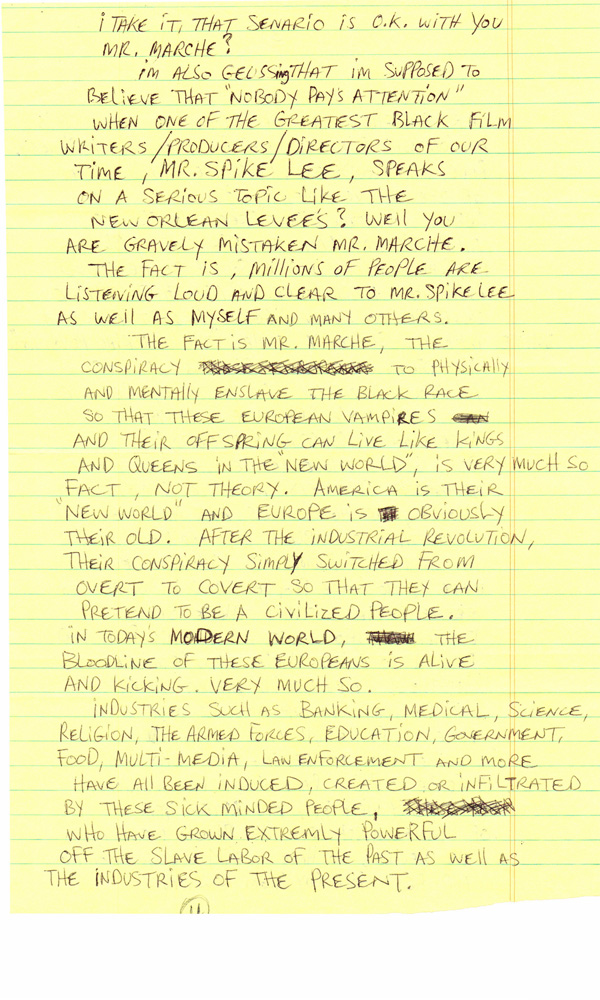 i TAKE iT, THAT SENARiO iS O.K. WiTH YOU
MR. MARCHE?
i'M ALSO GEUSSingTHAT i'M SUPPOSED TO
BELiEVE THAT "NOBODY PAYS ATTENTiON"
WHEN ONE OF THE GREATEST BLACK FiLM
WRiTERS/PRODUCERS/DiRECTORS OF OUR
TiME, MR. SPiKE LEE, SPEAKS
ON A SERiOUS TOPiC LiKE THE
NEW ORLEAN LEVEES? WEll YOU
ARE GRAVELY MiSTAKEN MR. MARCHE.
THE FACT iS, MilliONS OF PEOPLE ARE
LiSTENiNG LOUD AND CLEAR TO MR. SPiKE LEE
AS WEll AS MYSELF AND MANY OTHERS.
THE FACT iS MR. MARCHE, THE
CONSPiRACY TO PHYSiCAllY
AND MENTAllY ENSLAVE THE BLACK RACE
SO THAT THESE EUROPEAN VAMPiRES
AND THEiR OFFSPRiNG CAN LiVE LiKE KiNGS
AND QUEENS iN THE "NEW WORLD", iS VERY MUCH SO
FACT, NOT THEORY. AMERiCA iS THEiR
"NEW WORLD" AND EUROPE iS OBViOUSLY
THEiR OLD. AFTER THE iNDUSTRiAL REVOLUTiON,
THEiR CONSPiRACY SiMPLY SWiTCHED FROM
OVERT TO COVERT SO THAT THEY CAN
PRETEND TO BE A CiViLiZED PEOPLE.
iN TODAY'S MODERN WORLD, THE
BLOODLiNE OF THESE EUROPEANS iS ALiVE
AND KiCKiNG. VERY MUCH SO.
iNDUSTRiES SUCH AS BANKiNG, MEDiCAL, SCiENCE,
RELiGiON, THE ARMED FORCES, EDUCATiON, GOVERNMENT,
FOOD, MULTi-MEDiA, LAW ENFORCEMENT AND MORE
HAVE All BEEN iNDUCED, CREATED OR iNFiLTRATED
BY THESE SiCK MiNDED PEOPLE,
WHO HAVE GROWN EXTREMLY POWERFUL
OFF THE SLAVE LABOR OF THE PAST AS WEll AS
THE iNDUSTRiES OF THE PRESENT.
11